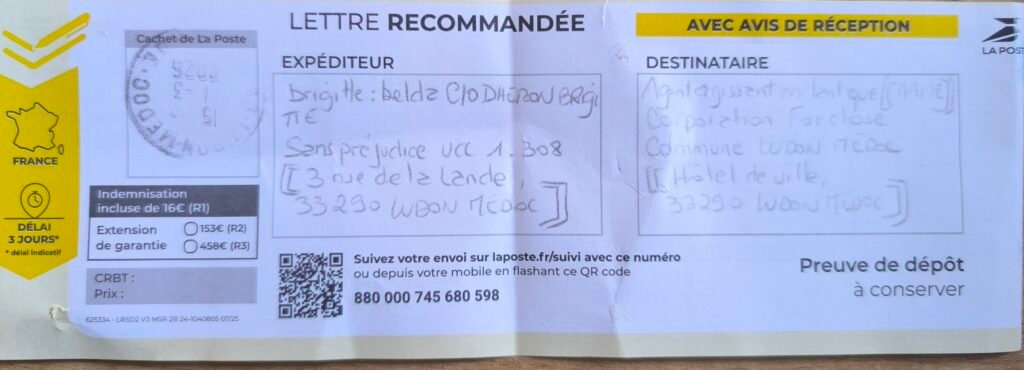 LETTRE RECOMMANDÉE
AVEC AVIS DE RÉCEPTION
LA POSTE
Cachet de La Poste
EXPÉDITEUR
brigitte : belda C/O DHERON BRIGI
TTE
Sans préjudice UCC 1-308
[[3 rue de la Lande,
33290 LUDON MÉDOC]]
DESTINATAIRE
Agent agissant en tant que [[MAIRE]]
Corporation Forclose
Commune LUDON MÉDOC
[[Hôtel de ville,
33290 LUDON MEDOC]]
FRANCE
DÉLAI
3 JOURS*
* délai indicatif
Indemnisation
incluse de 16€ (R1)
Extension
de garantie
153€ (R2)
458€ (R3)
CRBT :
Prix :
Suivez votre envoi sur laposte.fr/suivi avec ce numéro
ou depuis votre mobile en flashant ce QR code
880 000 745 680 598
Preuve de dépôt
à conserver
625334 - LRSO2 V3 MSP 20 24-1040805 07/25